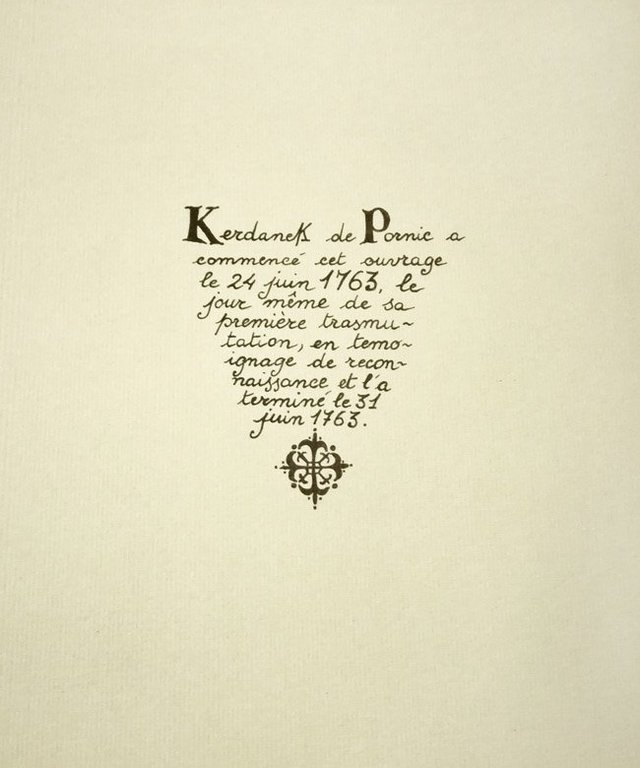 Kerdanek de Pornic a
commencé cet ouvrage
le 24 juin 1763, le
jour même de sa
première trasmu~
tation, en temo~
ignage de recon~
naissance et l'a
terminé le 31
juin 1763.